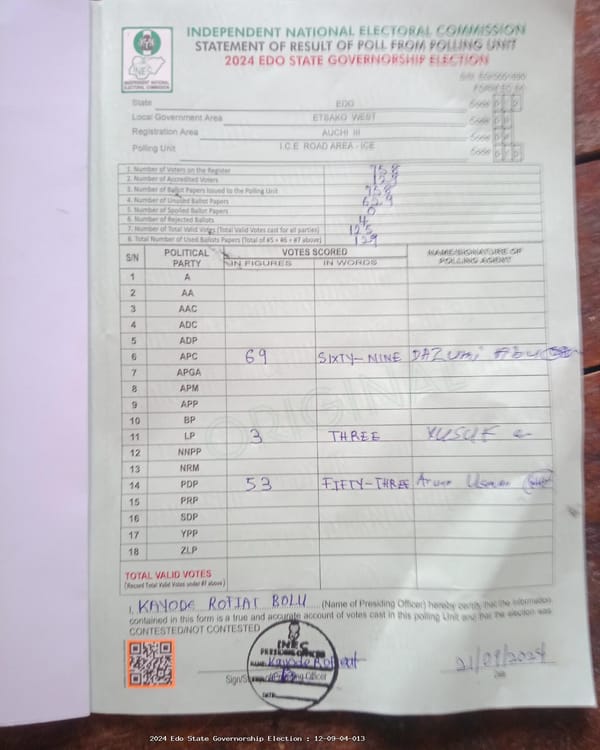 INDEPENDENT NATIONAL ELECTORAL COMMISSION
STATEMENT OF RESULT OF POLL FROM POLLING UNIT
2024 EDO STATE GOVERNORSHIP ELECTION
INEC
INDEPENDENT NATIONAL ELECTORAL COMMISSION
State EDO Code
Local Government Area ETSAKO WEST Code
Registration Area AUCHI III Code
Polling Unit I.C.E ROAD AREA - ICE Code
1. Number of Voters on the Register 758
2. Number of Accredited Voters
3. Number of Ballot Papers Issued to the Polling Unit 758
4. Number of Unused Ballot Papers 629
5. Number of Spoiled Ballot Papers 0
6. Number of Rejected Ballots 4
7. Number of Total Valid Votes (Total Valid Votes cast for all parties) 125
8. Total Number of Used Ballots Papers (Total of #5 + #6 + #7 above) 129
S/N POLITICAL PARTY VOTES SCORED NAME/SIGNATURE OF POLLING AGENT
IN FIGURES IN WORDS
1 A
2 AA
3 AAC
4 ADC
5 ADP
6 APC 69 SIXTY-NINE
7 APGA
8 APM
9 APP
10 BP
11 LP 3 THREE YUSUF
12 NNPP
13 NRM
14 PDP 53 FIFTY-THREE
15 PRP
16 SDP
17 YPP
18 ZLP
ORIGINAL
TOTAL VALID VOTES
(Record Total Valid Votes under #7 above)
I, KAYODE ROTIAT BOLU (Name of Presiding Officer) hereby certify that the information
contained in this form is a true and accurate account of votes cast in this polling Unit and that the election was
CONTESTED/NOT CONTESTED
INEC
PRESIDING OFFICER
NAME: Kayode Rotiat
DATE:
21/09/2024
Date
2024 Edo State Governorship Election : 12-09-04-013